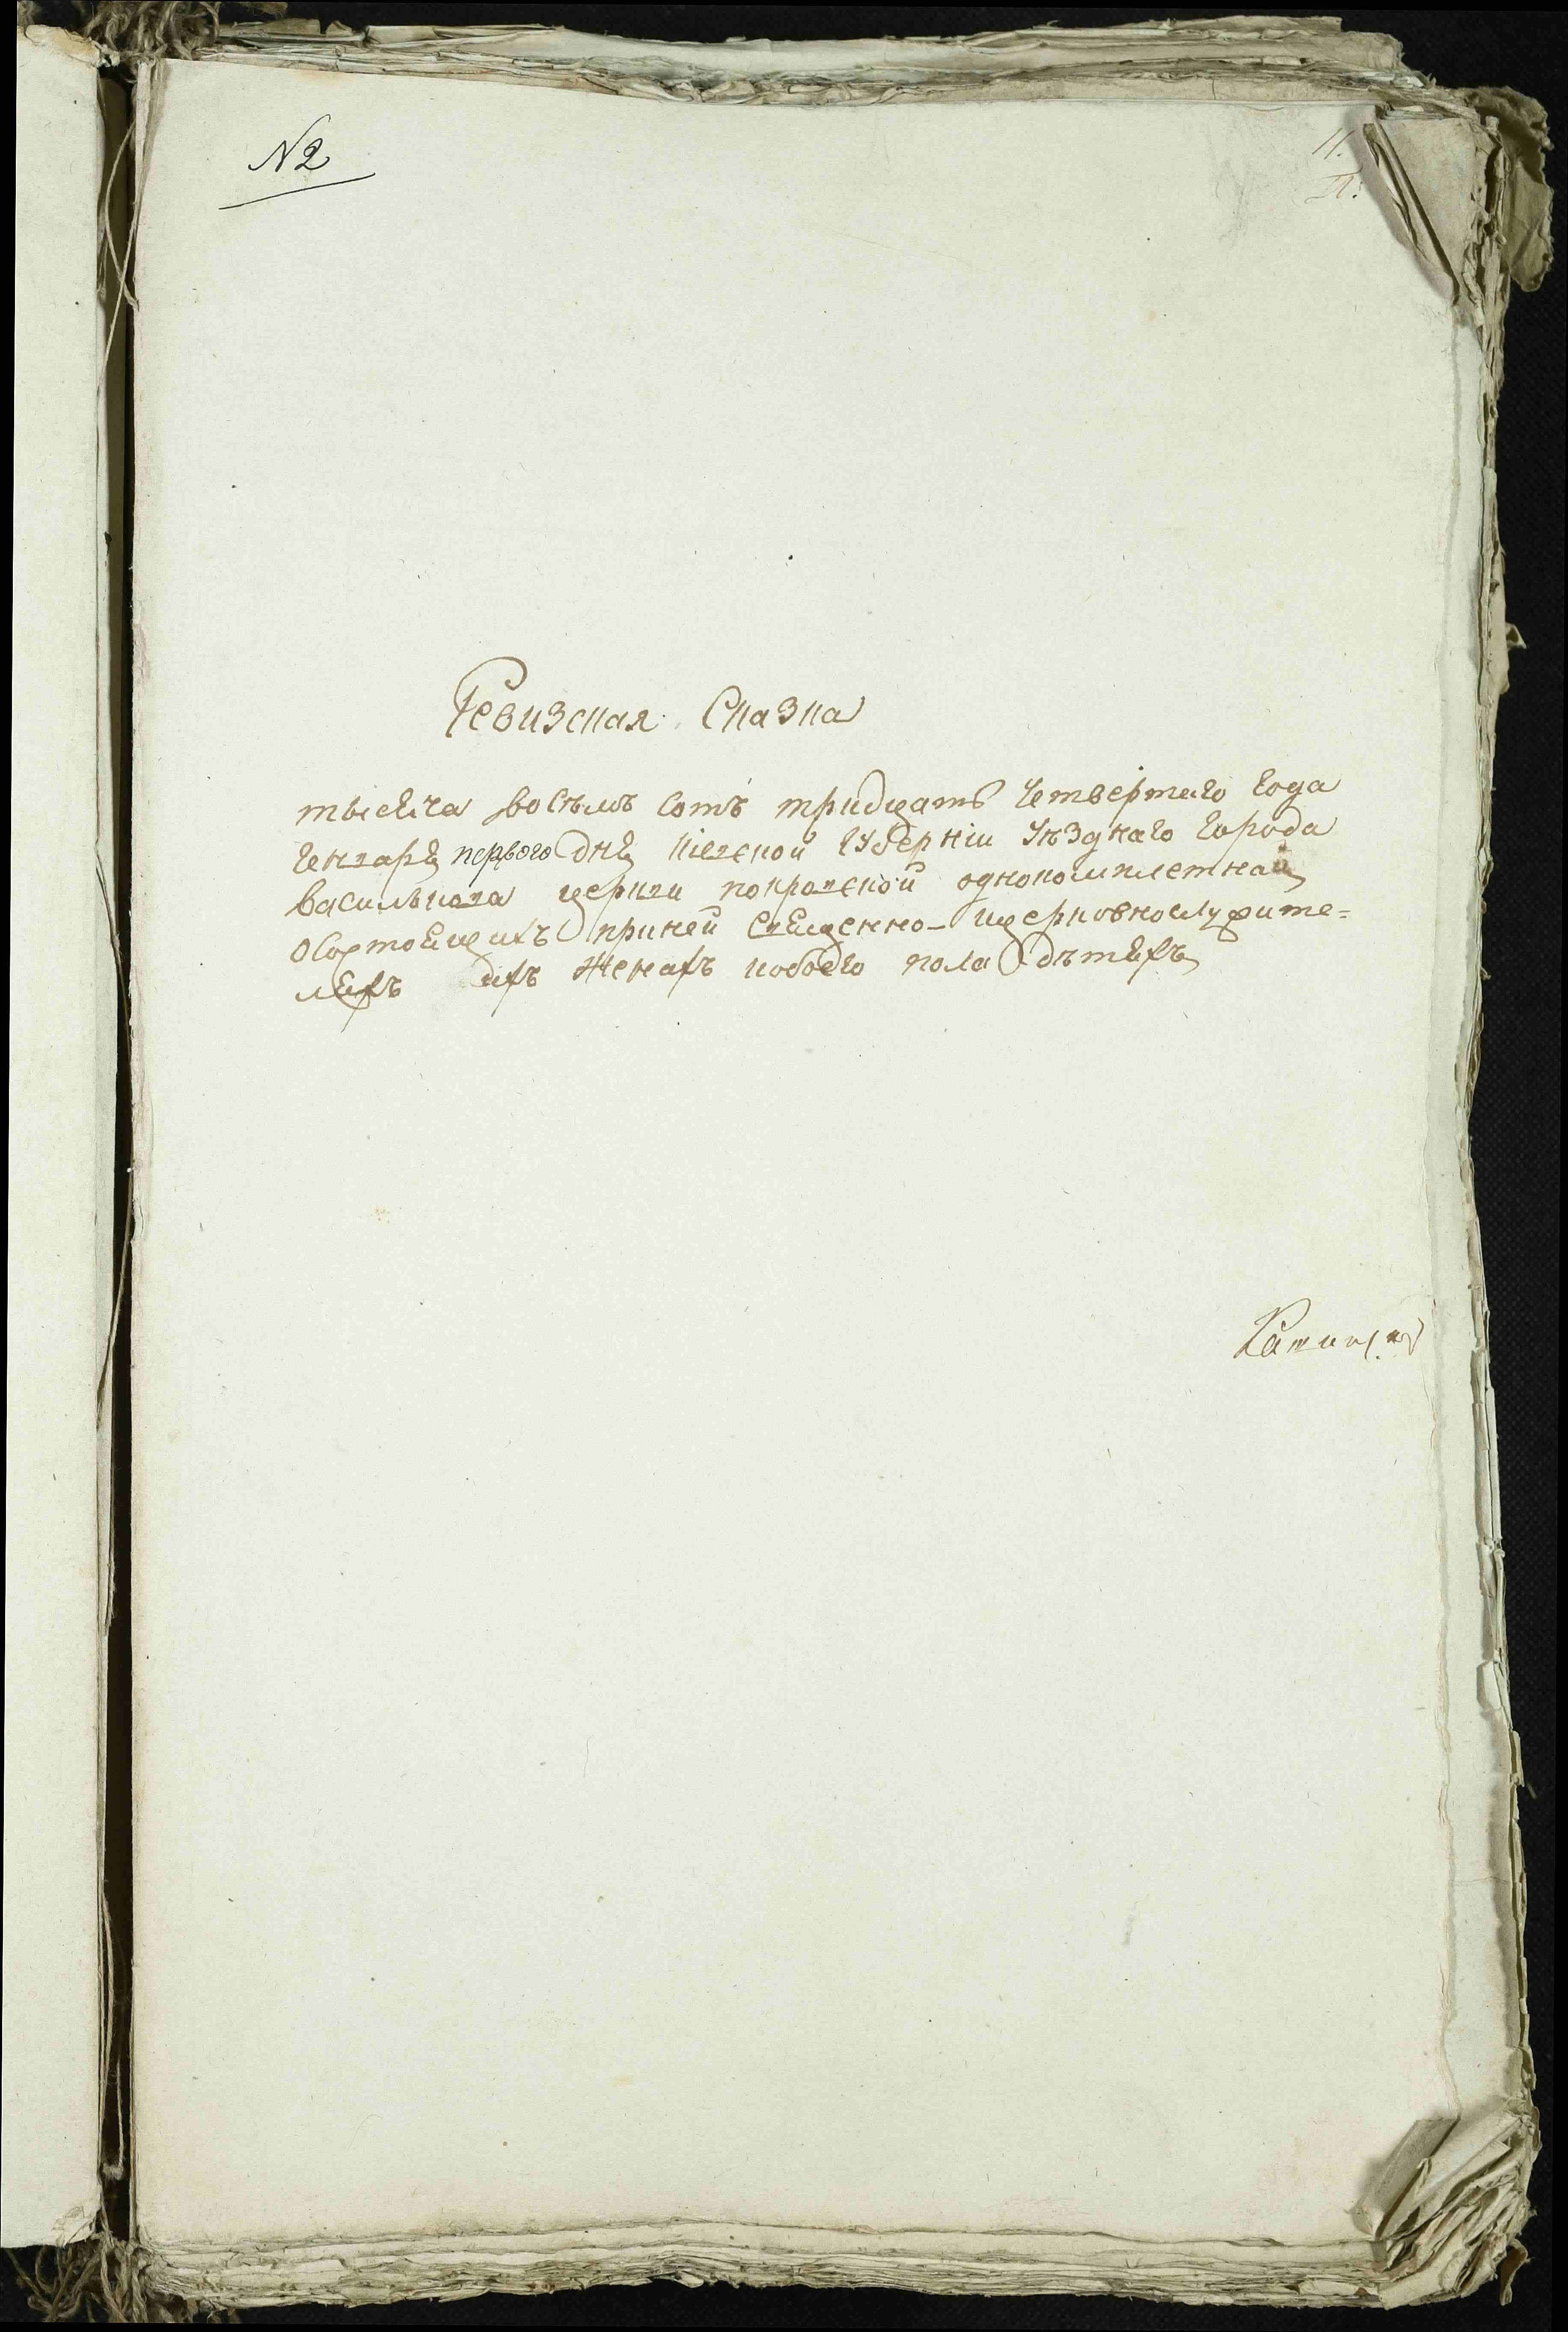 N 2
11.
Ревизская Сказка
тысяча восѣмъ сотъ тридцать Четвертаго года
Генваря первого дня Кіевской Губерніи Уѣзднаго города
василькова церкви покровской однокомплетной
осостоящихъ приней Священно-церковнослужите=
ляхъ ихъ Женахъ иобоего пола дѣтяхъ